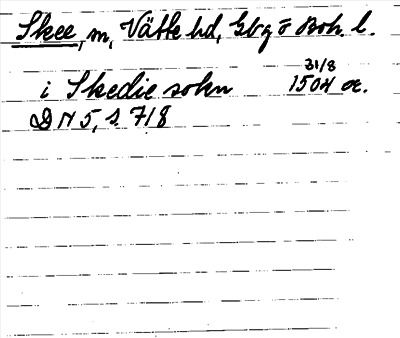 Skee, sn, Vätte hd, Gbg o Boh. l.
i Skedie sokn 31/8 1504 or.
DN 5, s. 718